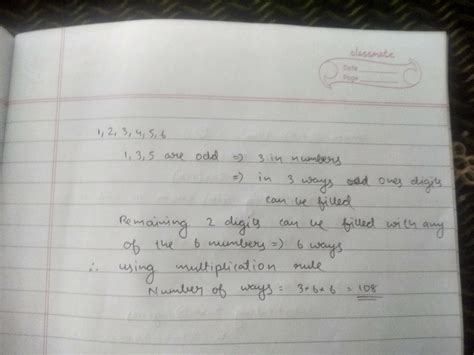 classmate
Date
Page
1, 2, 3, 4, 5, 6
1, 3, 5 are odd => 3 in numbers
=> in 3 ways odd ones digits
can be filled
Remaining 2 digits can be filled with any
of the 6 numbers => 6 ways
∴ using multiplication rule
Number of ways = 3*6*6 = 108